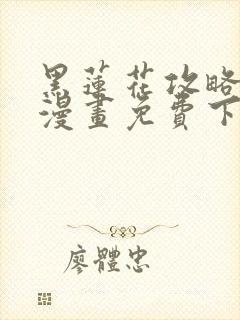 黑蓮花攻略
漫畫免費下
廖體忠